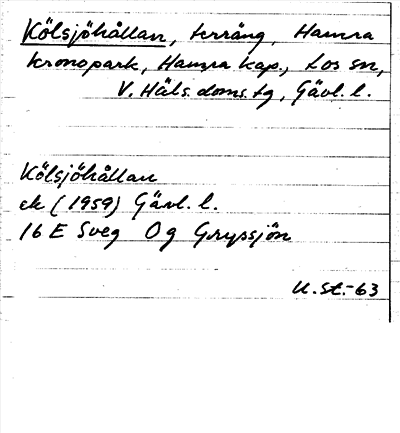 Kölsjöhållan, terräng, Hamra
kronopark, Hamra kap., Los sn,
V. Häls. doms. tg, Gävl. l.
Kölsjöhållan
ek (1959) Gävl. l.
16 E Sveg 0 g Grypsjön
U. St. -63